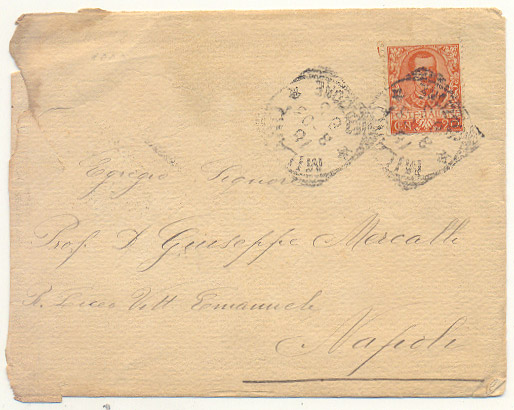 MILANO
MILANO
Egregio Signore
Prof. D. Giuseppe Mercalli
R. Liceo Vitt Emanuele
Napoli